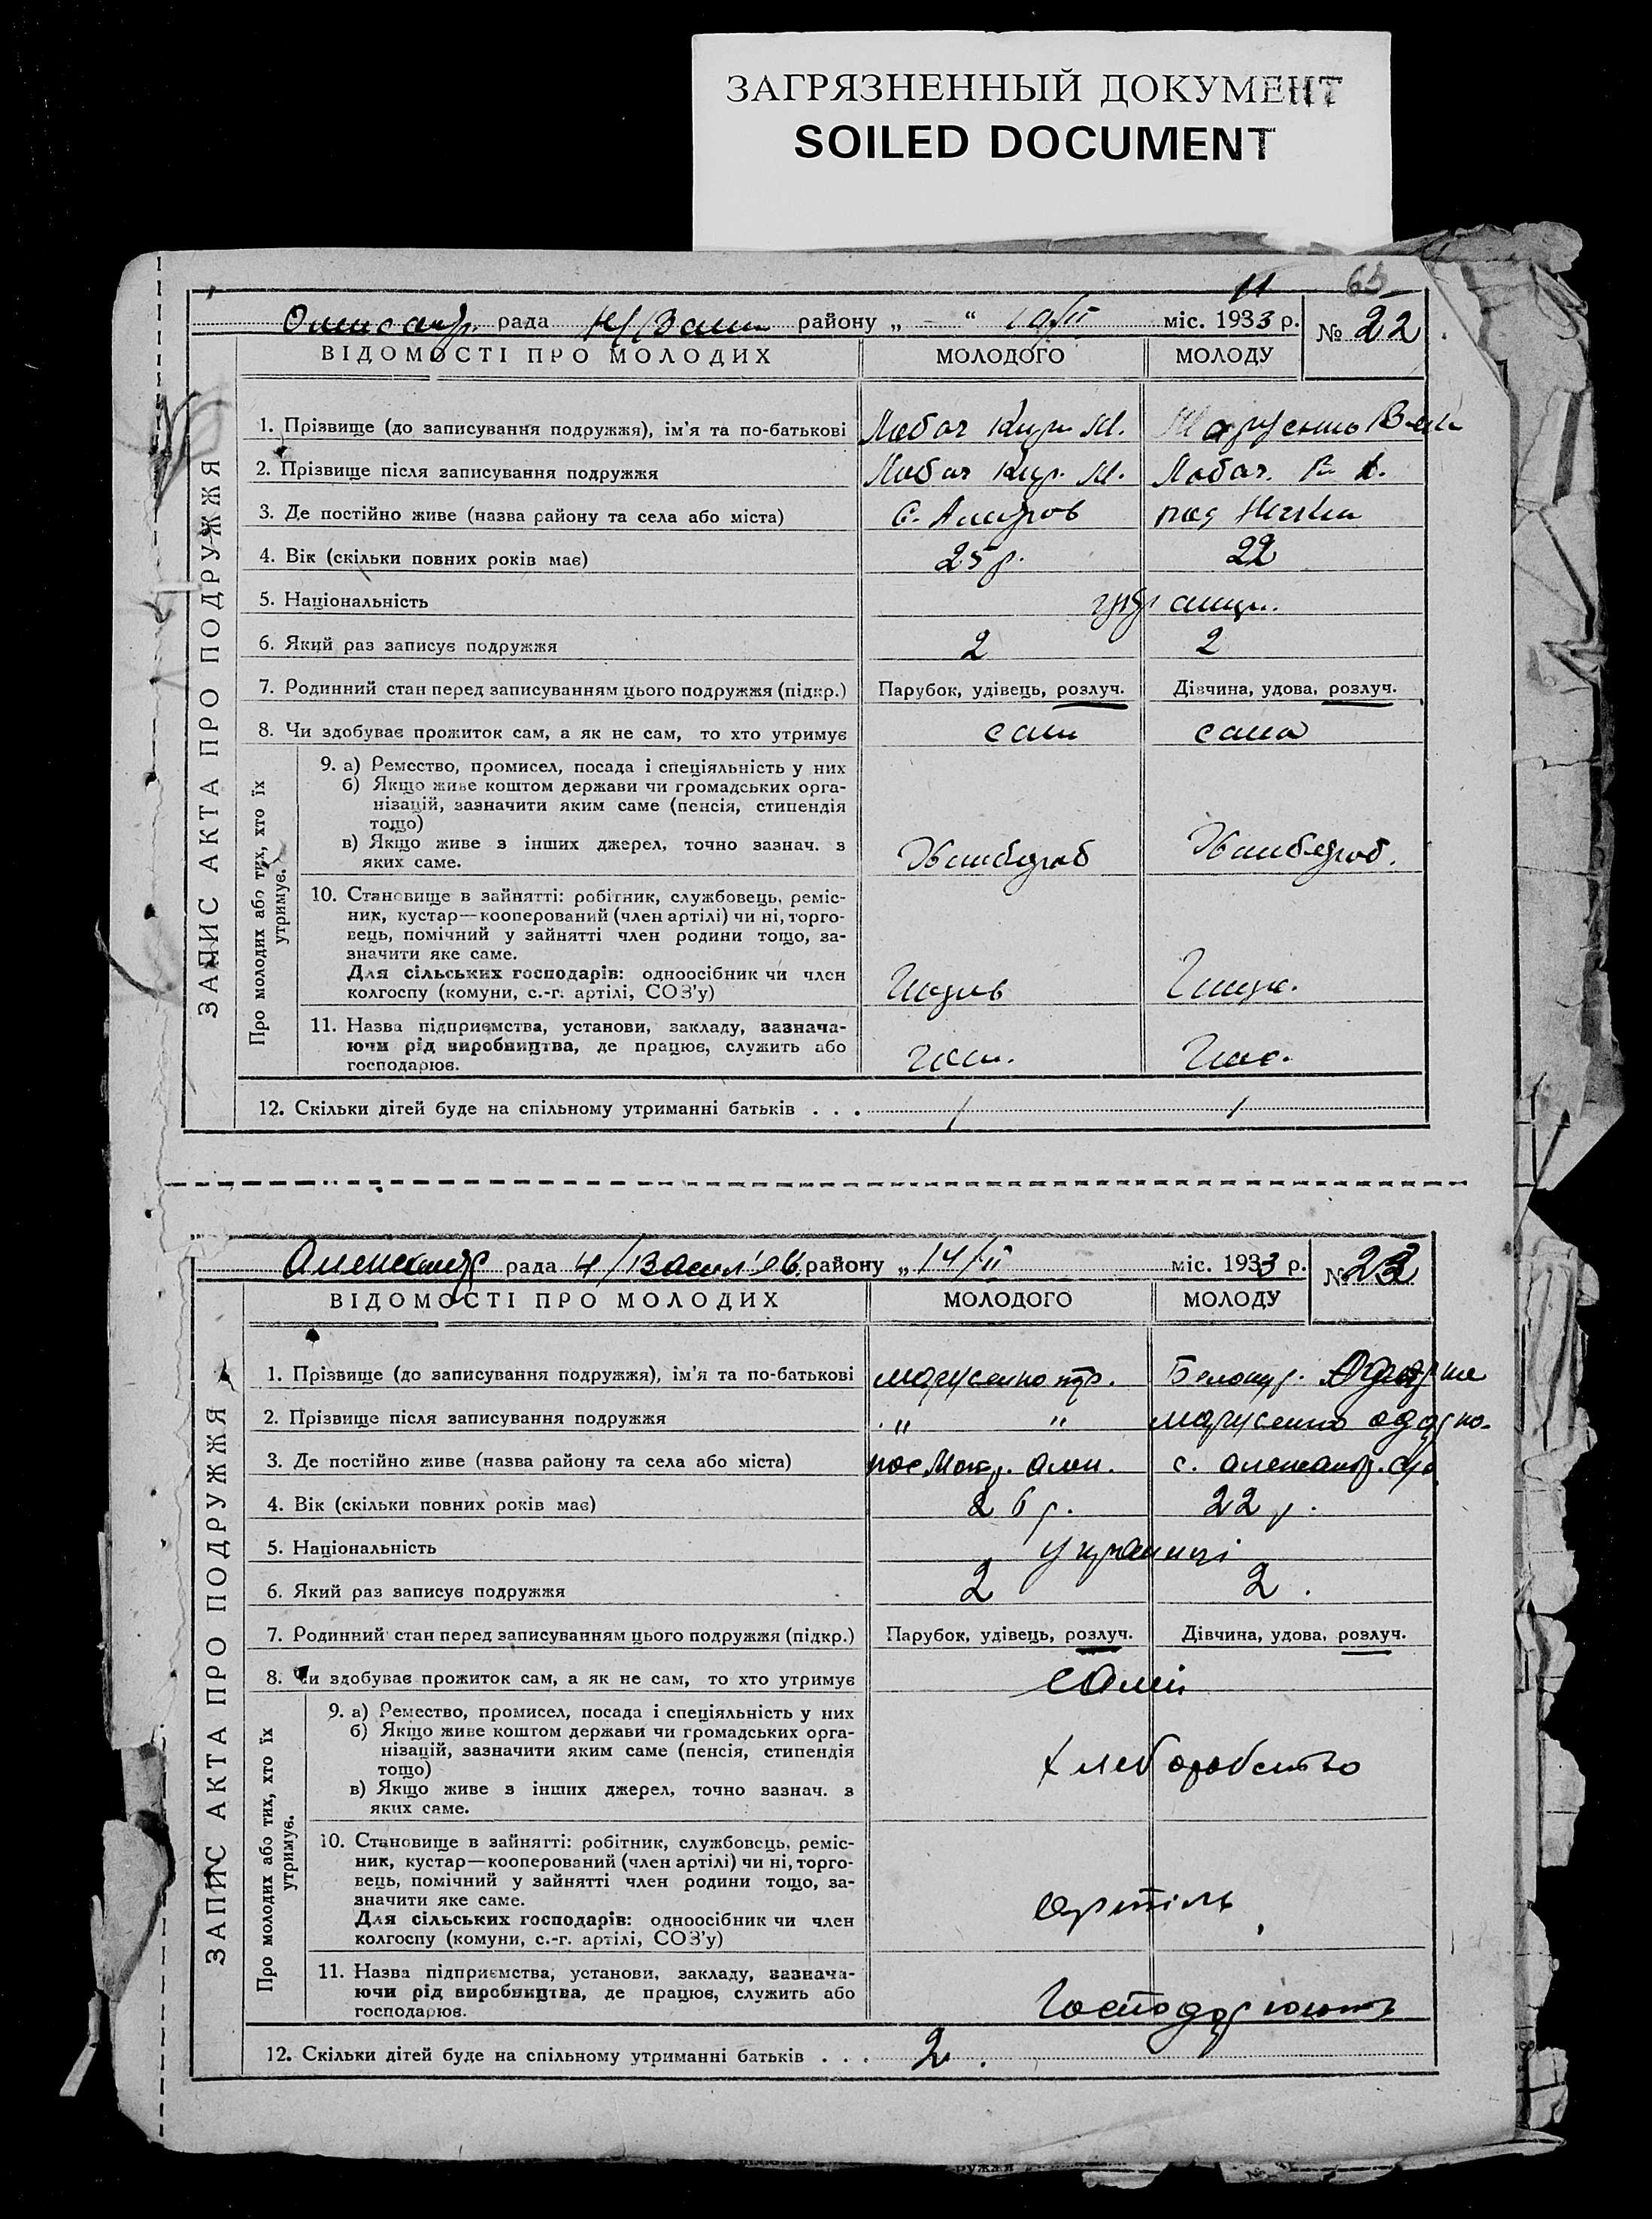 ЗАГРЯЗНЕННЫЙ ДОКУМЕНТ
SOILED DOCUMENT
11
рада района міс. 1933 р. № 22
ВІДОМОСТІ ПРО МОЛОДИХ МОЛОДОГО МОЛОДУ
ЗАПИС АКТА ПРО ПОДРУЖЖЯ
1. Прізвище (до записування подружжя), ім'я та по-батькові Лобач Кир. М.
2. Прізвище після записування подружжя Лобач Кир. М. Лобач. В.
3. Де постійно живе (назва району та села або міста) с.
4. Вік (скільки повних років має) 25 р. 22
5. Національність
6. Який раз записує подружжя 2 2
7. Родинний стан перед записуванням цього подружжя (підкр.) Парубок, удівець, розлуч. Дівчина, удова, розлуч.
8. Чи здобуває прожиток сам, а як не сам, то хто утримує сам сама
Про молодих або тих, хто їх утримує.
9. а) Ремество, промисел, посада і спеціяльність у них
б) Якщо живе коштом держави чи громадських орга-
нізацій, зазначити яким саме (пенсія, стипендія
тощо)
в) Якщо живе з інших джерел, точно зазнач. з
яких саме. Хлібороб Хлібороб.
10. Становище в зайнятті: робітник, службовець, реміс-
ник, кустар—кооперований (член артілі) чи ні, торго-
вець, помічний у зайнятті член родини тощо, за-
значити яке саме.
Для сільських господарів: одноосібник чи член
колгоспу (комуни, с.-г. артілі, СОЗ'у)
11. Назва підприємства, установи, закладу, зазнача-
ючи рід виробництва, де працює, служить або
господарює.
12. Скільки дітей буде на спільному утриманні батьків . . . / /
Александр рада Н/Васил'ев. району „14/II міс. 1933 р. № 23
ВІДОМОСТІ ПРО МОЛОДИХ МОЛОДОГО МОЛОДУ
ЗАПИС АКТА ПРО ПОДРУЖЖЯ
1. Прізвище (до записування подружжя), ім'я та по-батькові Марусенко Белокур.
2. Прізвище після записування подружжя „ „ Марусенко
3. Де постійно живе (назва району та села або міста) пос с. Александр.
4. Вік (скільки повних років має) 26 р. 22 р.
5. Національність українці
6. Який раз записує подружжя 2 2.
7. Родинний стан перед записуванням цього подружжя (підкр.) Парубок, удівець, розлуч. Дівчина, удова, розлуч.
8. Чи здобуває прожиток сам, а як не сам, то хто утримує самі
Про молодих або тих, хто їх утримує.
9. а) Ремество, промисел, посада і спеціяльність у них
б) Якщо живе коштом держави чи громадських орга-
нізацій, зазначити яким саме (пенсія, стипендія
тощо)
в) Якщо живе з інших джерел, точно зазнач. з
яких саме. хлеборобство
10. Становище в зайнятті: робітник, службовець, реміс-
ник, кустар—кооперований (член артілі) чи ні, торго-
вець, помічний у зайнятті член родини тощо, за-
значити яке саме.
Для сільських господарів: одноосібник чи член
колгоспу (комуни, с.-г. артілі, СОЗ'у) артіль
11. Назва підприємства, установи, закладу, зазнача-
ючи рід виробництва, де працює, служить або
господарює. Господарюють
12. Скільки дітей буде на спільному утриманні батьків . . . 2.